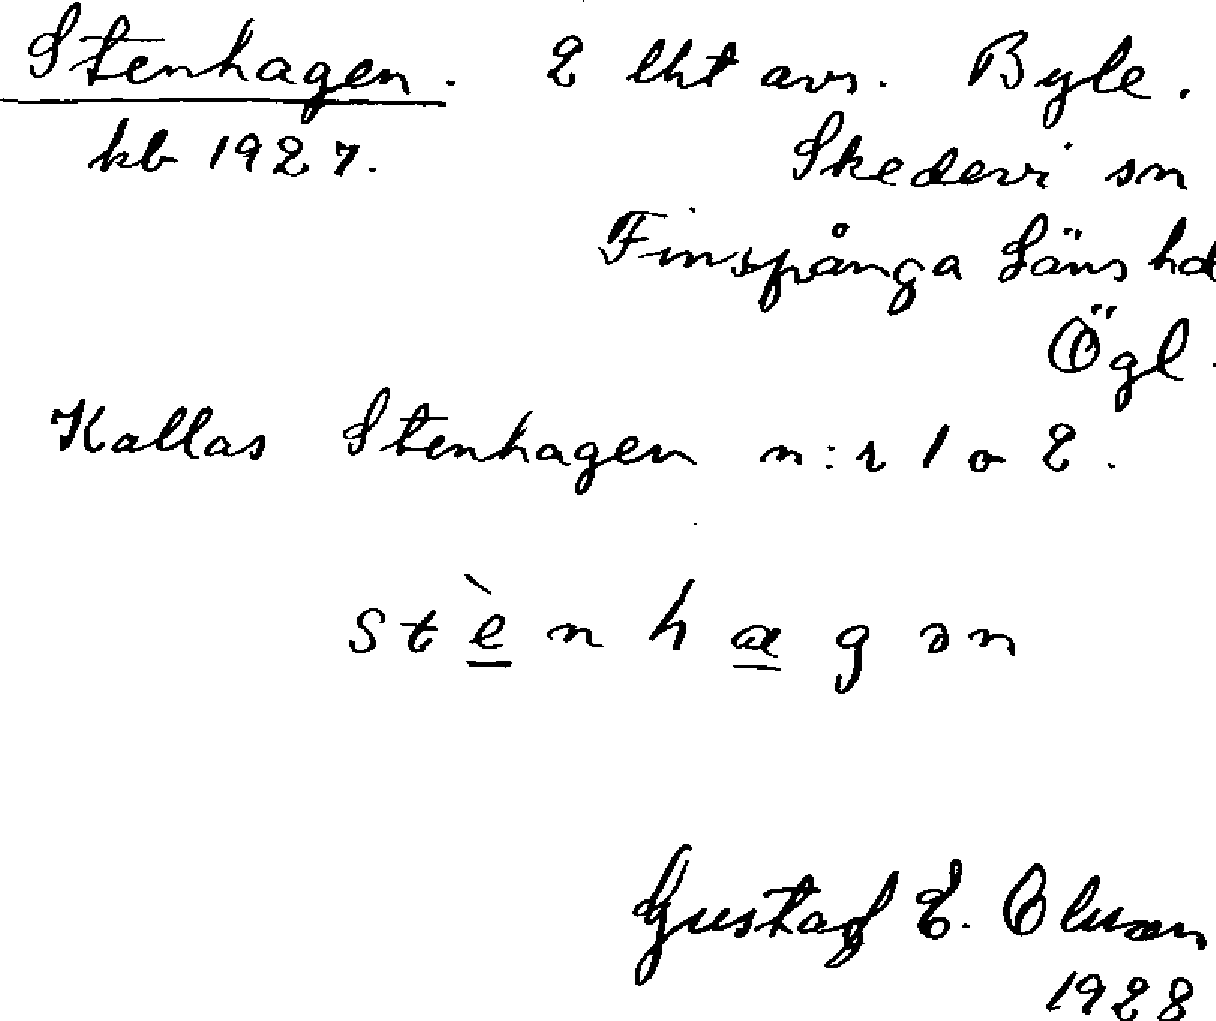 Stenhagen. 2 lht avs. Byle.
kb 1927. Skedevi sn
Finspånga läns hd
Ögl.
Kallas Stenhagen n:r 1 o 2.
st è n h a g ə n
Gustaf E. Olsson
1928